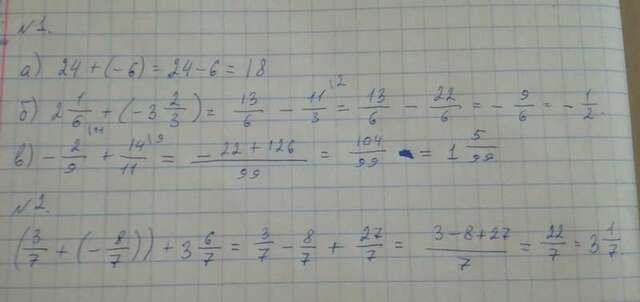 №1.
а) 24 + (-6) = 24 - 6 = 18
б) 2 1/6 + (-3 2/3) = 13/6 - 11/3 \2 = 13/6 - 22/6 = - 9/6 = - 1/2.
в) - 2/9 \11 + 14/11 \9 = (-22 + 126)/99 = 104/99 = 1 5/99
№2.
(3/7 + (- 8/7)) + 3 6/7 = 3/7 - 8/7 + 27/7 = (3 - 8 + 27)/7 = 22/7 = 3 1/7.